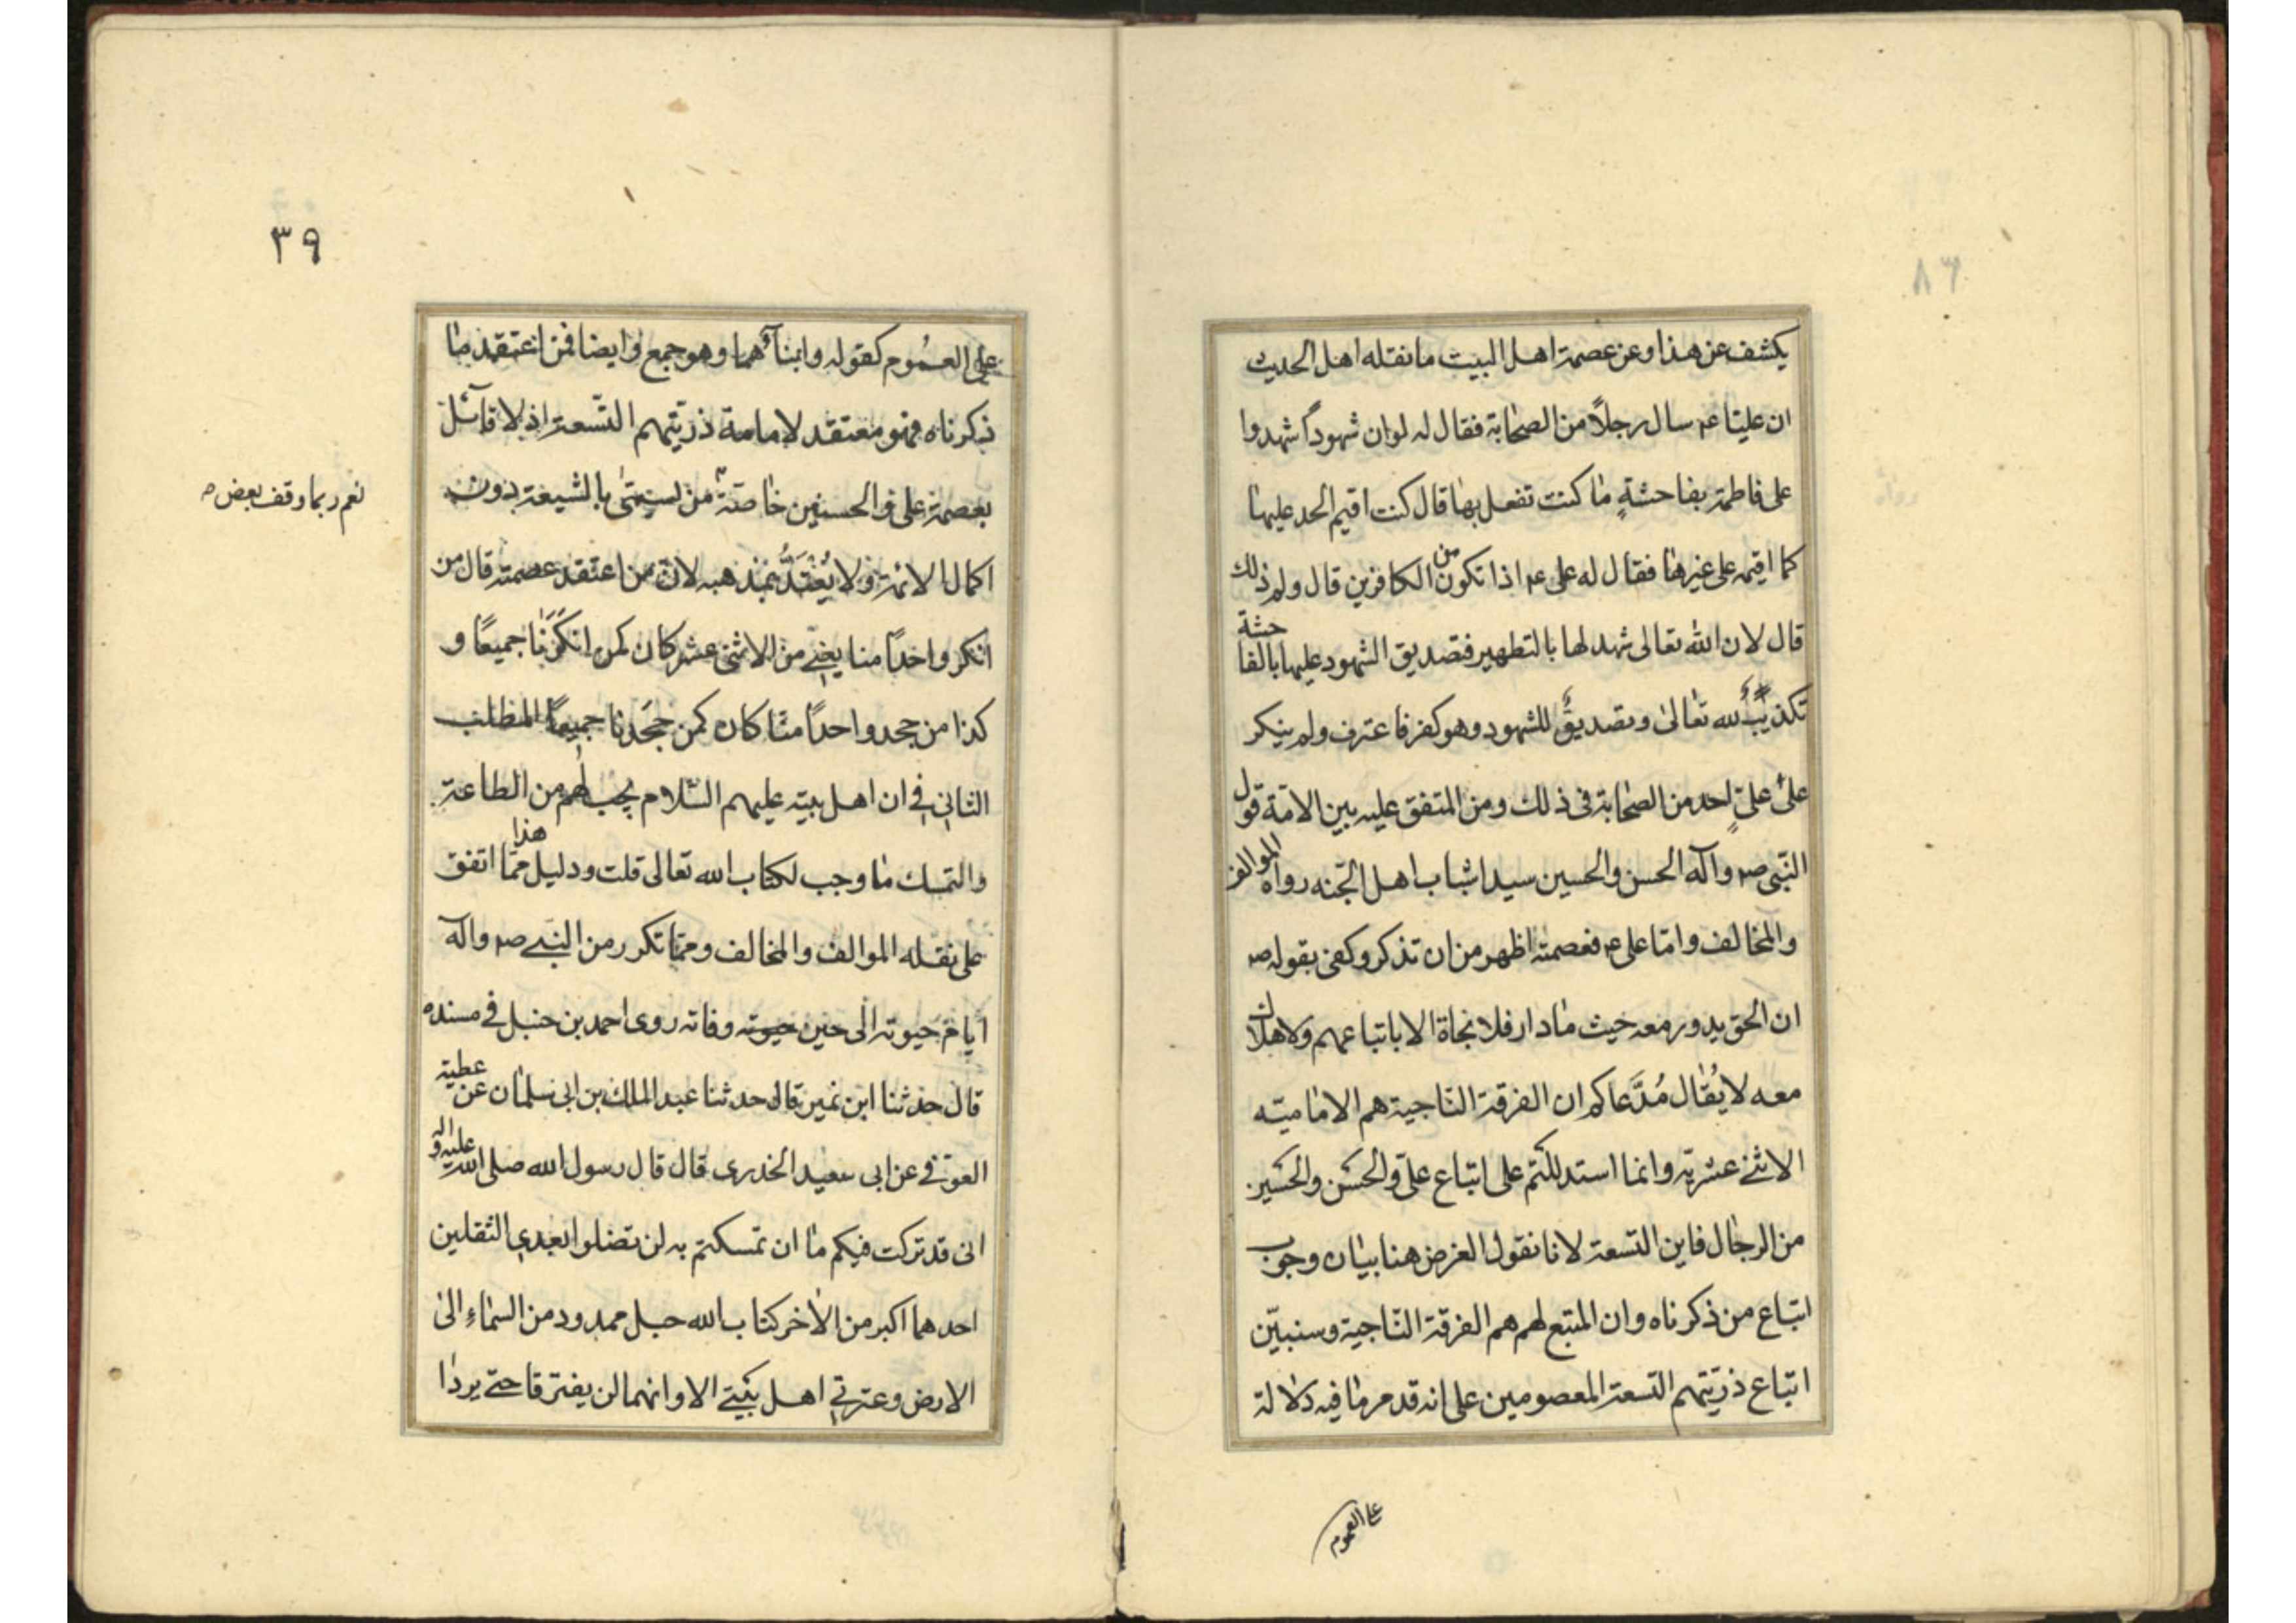 يكشف عن هذا وعن عصمة اهل البيت ما نقله اهل الحديث
ان عليا عم سال رجلاً من الصحابة فقال له لو ان شهوداً شهدوا
على فاطمة بفاحشةٍ ما كنت تفعل بها قال كنت اقيم الحد عليها
كما اقيمه على غيرها فقال له على عم اذا تكون من الكافرين قال ولم ذلك
قال لان الله تعالى شهد لها بالتطهير فتصديق الشهود عليها بالفاحشة
تكذيبٌ لله تعالى وتصديقٌ للشهود وهو كفر فاعترف ولم ينكر
على علىٍ احد من الصحابة فى ذلك ومن المتفق عليه بين الامّة قول
النّبى صم وآله الحسن والحسين سيدا شباب اهل الجّنه رواه الموالف
والمخالف وامّا على عم فعصمته اظهر من ان تذكر وكفى بقوله صم
ان الحق يدور معه حيث مادار فلا نجاة الا باتباعهم ولا هلاك
معه لا يُقال مُدَّعاكم ان الفرقة النّاجية هم الاماميّه
الاثنى عشريّه وانما استدللتم على اتباع علىّ والحسَن والحسَين
من الرجال فاين التسعة لانا نقول الغرض هنا بيان وجوب
اتباع من ذكرناه وان المتبع لهم هم الفرقة النّاجية وسنبيّن
اتباع ذرّيّتهم التسعة المعصومين على انه قد مر ما فيه دلالة
على العموم
٣٩
على العمُوم كقوله وابنآؤهما وهو جمع وايضا فمن اعتقد ما
ذكرناه فهو معتقد لامامة ذرّيّتهم التّسعة اذ لا قائل
بعصمة على والحسنين خاصّة من يسمّى بالشيعة بدون
نعم ربما وقف بعض م
اكمال الائمة ولا يُعْتَدُّ بمذهبه لان من اعتقد عصمته قال من
انكر واحداً منا يعنى من الاثنى عشر كان كمن انكرَنا جميعًا و
كذا من جحد واحداً منّا كان كمن جحَدنا جميعًا المطلب
الثانى فى ان اهل بيته عليهم السّلام يجب لهم من الطاعة
والتمسك ما وجب لكتاب الله تعالى قلت ودليل هذا ممّا اتفق
على نقله الموالف والمخالف وممّا تكرر من النبى صم وآله
ايام حيوته الى حين وفاته روى احمد بن حنبل فى مسنده
قال حدثنا ابن نمير قال حدثنا عبد الملك بن ابى سلمان عن عطية
العوفى عن ابى سعيد الخدرى قال قال رسول الله صلى الله عليه واله
انى قد تركت فيكم ما ان تمسكتم به لن تضلوا بعدى الثقلين
احدهما اكبر من الاخر كتاب الله حبل ممدود من السّماءِ الى
الارض وعترتى اهل بيتى الا وانهما لن يفترقا حتى يردا